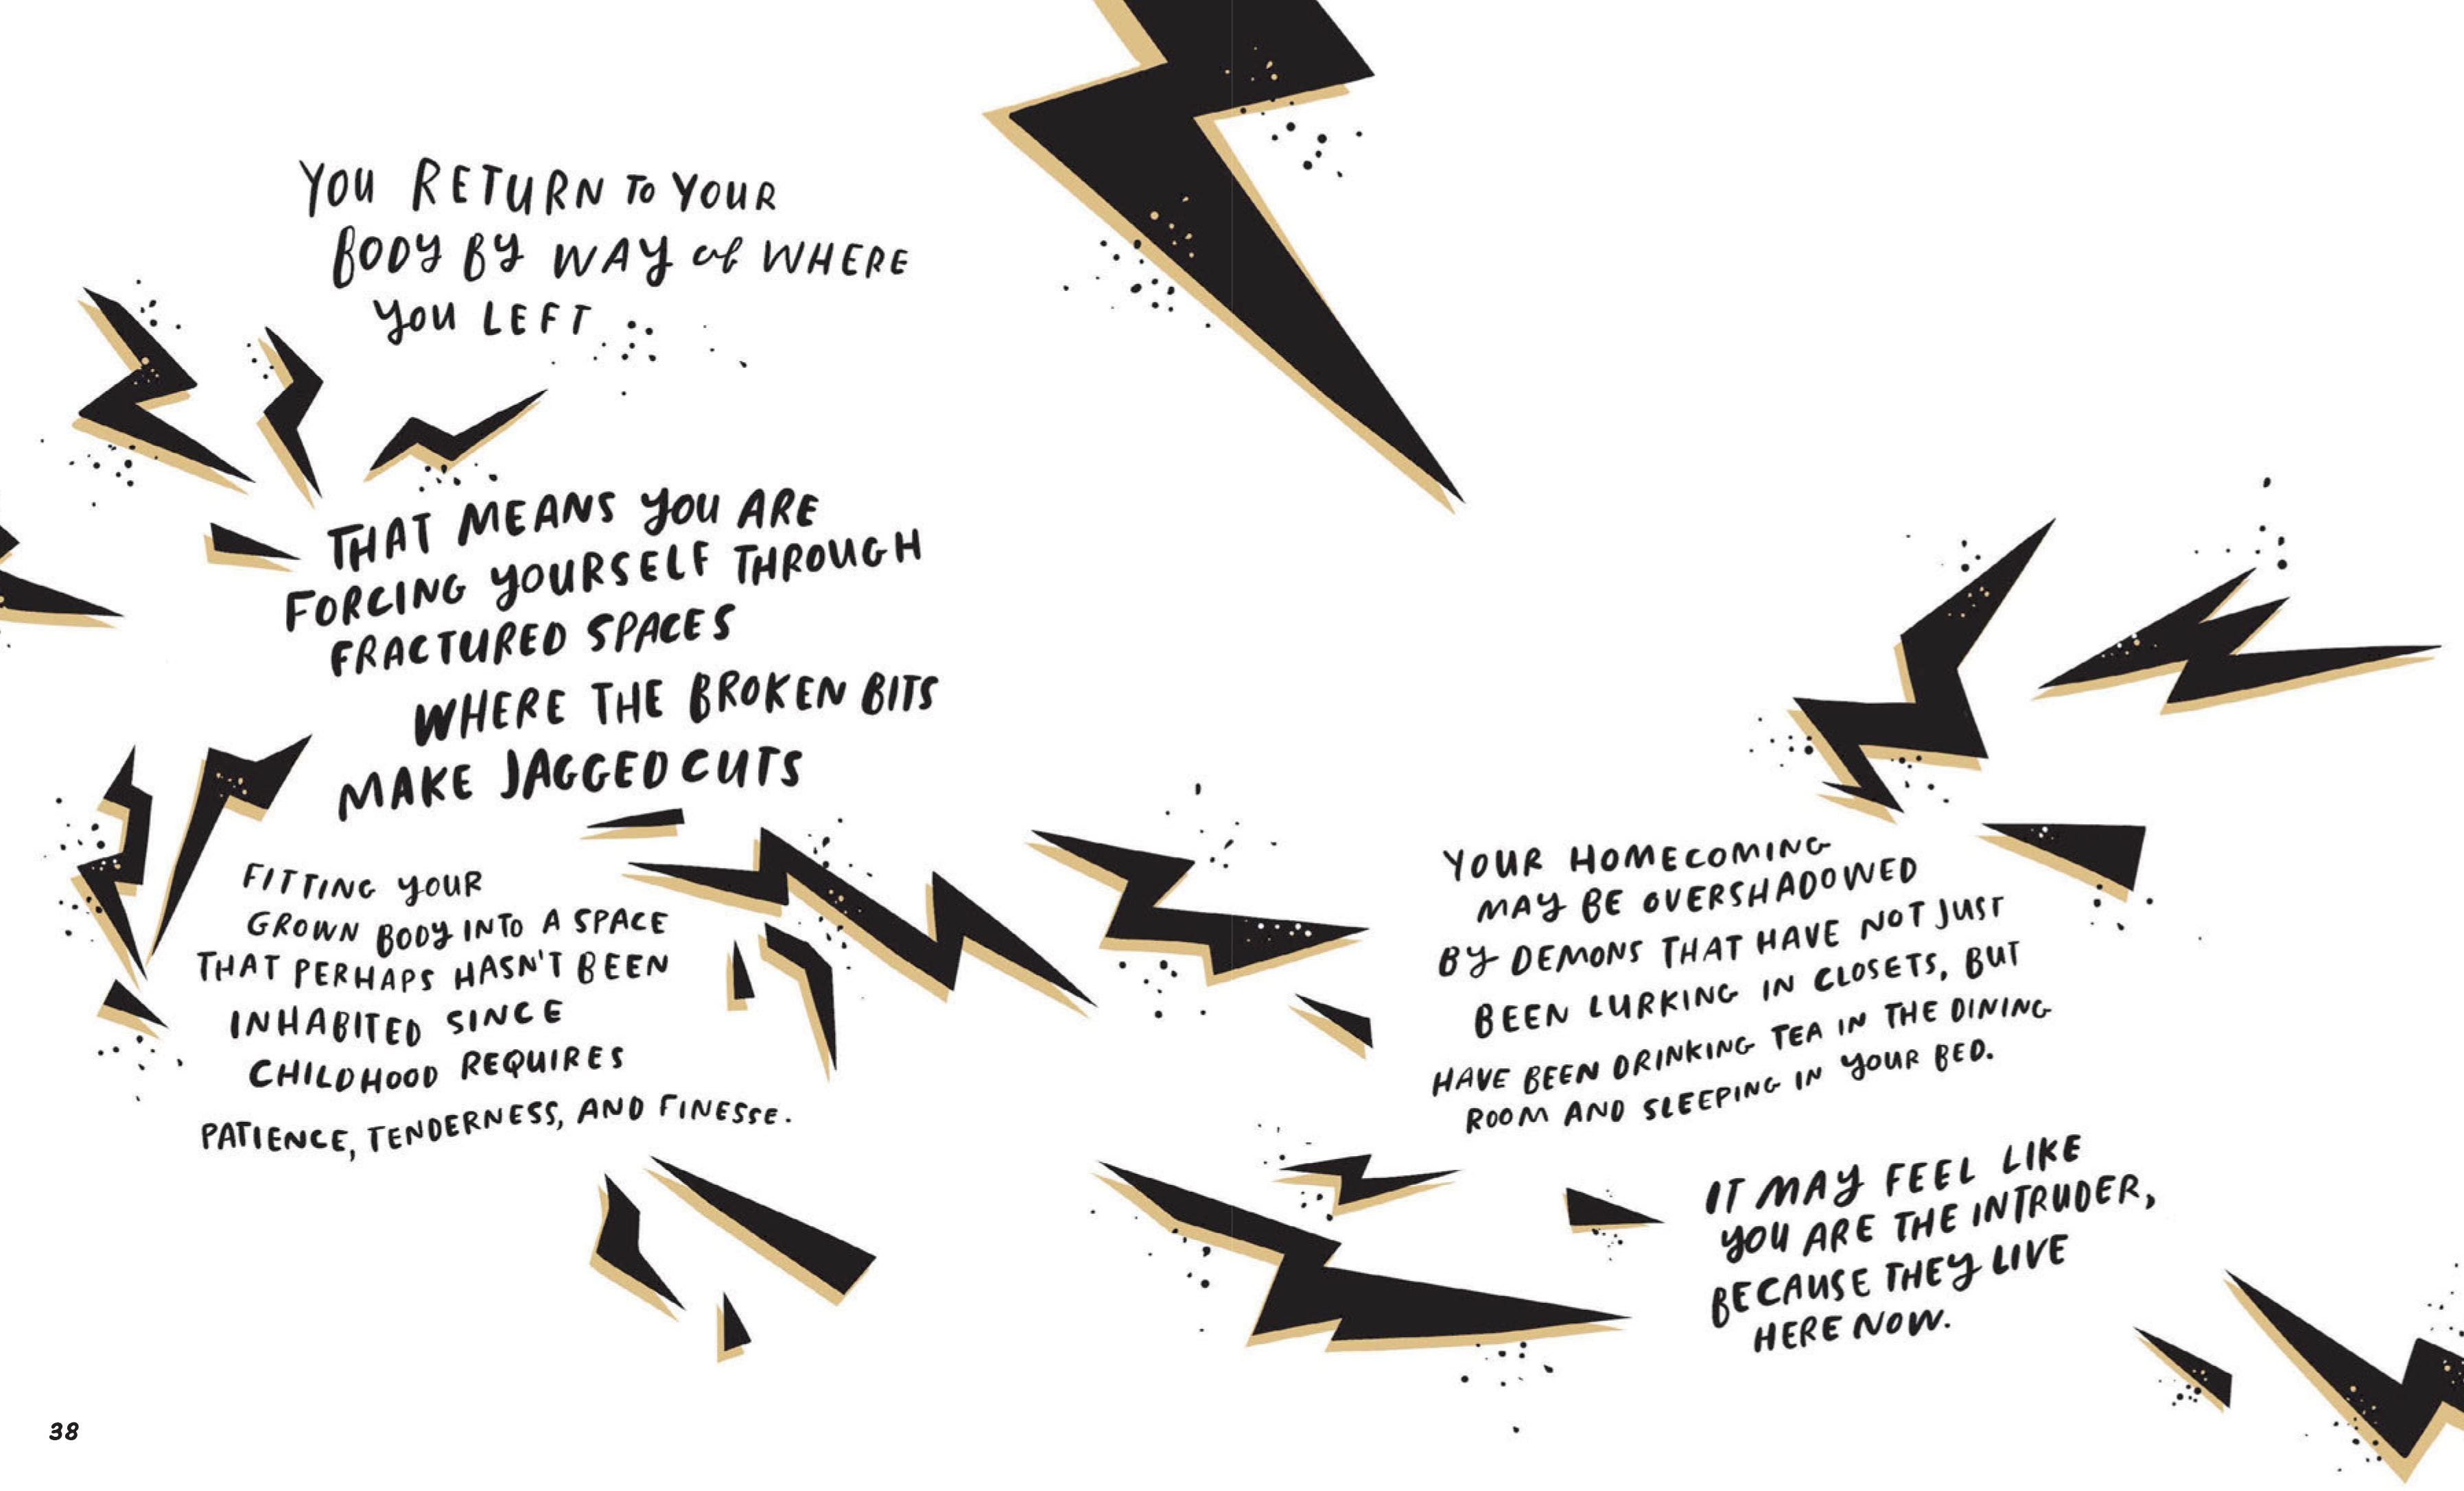 YOU RETURN TO YOUR
BODY BY WAY of WHERE
YOU LEFT
THAT MEANS YOU ARE
FORCING YOURSELF THROUGH
FRACTURED SPACES
WHERE THE BROKEN BITS
MAKE JAGGED CUTS
FITTING YOUR
GROWN BODY INTO A SPACE
THAT PERHAPS HASN'T BEEN
INHABITED SINCE
CHILDHOOD REQUIRES
PATIENCE, TENDERNESS, AND FINESSE.
YOUR HOMECOMING
MAY BE OVERSHADOWED
BY DEMONS THAT HAVE NOT JUST
BEEN LURKING IN CLOSETS, BUT
HAVE BEEN DRINKING TEA IN THE DINING
ROOM AND SLEEPING IN YOUR BED.
IT MAY FEEL LIKE
YOU ARE THE INTRUDER,
BECAUSE THEY LIVE
HERE NOW.
38